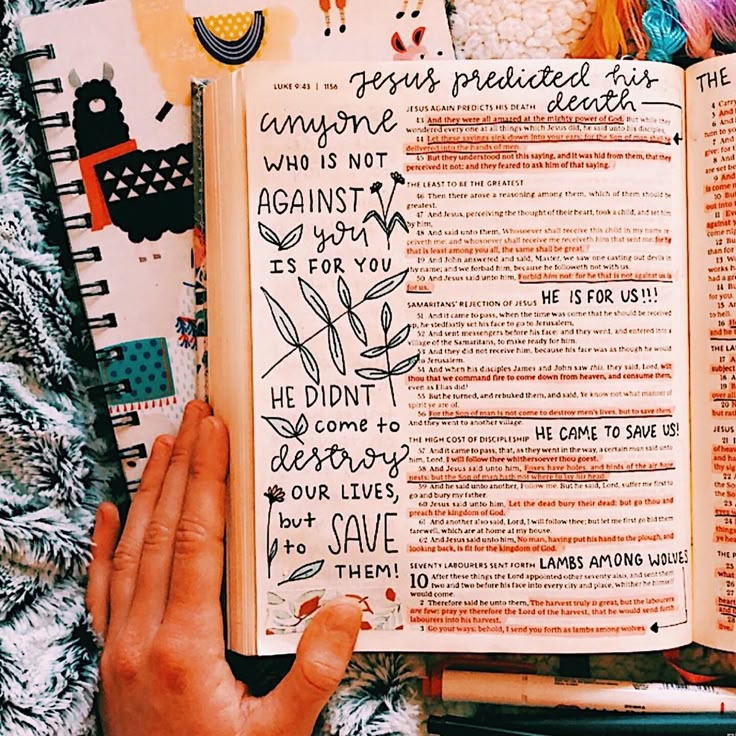 LUKE 9:43 | 1156
Jesus predicted his
death
anyone
WHO IS NOT
AGAINST
you
IS FOR YOU
HE DIDNT
come to
destroy
OUR LIVES,
but
to SAVE
THEM!
JESUS AGAIN PREDICTS HIS DEATH
43 And they were all amazed at the mighty power of God. But while they
wondered every one at all things which Jesus did, he said unto his disciples,
44 Let these sayings sink down into your ears: for the Son of man shall be
delivered into the hands of men.
45 But they understood not this saying, and it was hid from them, that they
perceived it not: and they feared to ask him of that saying.
THE LEAST TO BE THE GREATEST
46 Then there arose a reasoning among them, which of them should be
greatest.
47 And Jesus, perceiving the thought of their heart, took a child, and set him
by him,
48 And said unto them, Whosoever shall receive this child in my name re-
ceiveth me: and whosoever shall receive me receiveth him that sent me: for he
that is least among you all, the same shall be great.
49 And John answered and said, Master, we saw one casting out devils in
thy name; and we forbad him, because he followeth not with us.
50 And Jesus said unto him, Forbid him not: for he that is not against us is
for us.
HE IS FOR US!!!
SAMARITANS' REJECTION OF JESUS
51 And it came to pass, when the time was come that he should be received
up, he stedfastly set his face to go to Jerusalem,
52 And sent messengers before his face: and they went, and entered into a
village of the Samaritans, to make ready for him.
53 And they did not receive him, because his face was as though he would
go to Jerusalem.
54 And when his disciples James and John saw this, they said, Lord, wilt
thou that we command fire to come down from heaven, and consume them,
even as Elias did?
55 But he turned, and rebuked them, and said, Ye know not what manner of
spirit ye are of.
56 For the Son of man is not come to destroy men's lives, but to save them.
And they went to another village.
THE HIGH COST OF DISCIPLESHIP
HE CAME TO SAVE US!
57 And it came to pass, that, as they went in the way, a certain man said unto
him, Lord, I will follow thee whithersoever thou goest.
58 And Jesus said unto him, Foxes have holes, and birds of the air have
nests; but the Son of man hath not where to lay his head.
59 And he said unto another, Follow me. But he said, Lord, suffer me first to
go and bury my father.
60 Jesus said unto him, Let the dead bury their dead: but go thou and
preach the kingdom of God.
61 And another also said, Lord, I will follow thee; but let me first go bid them
farewell, which are at home at my house.
62 And Jesus said unto him, No man, having put his hand to the plough, and
looking back, is fit for the kingdom of God.
SEVENTY LABOURERS SENT FORTH
LAMBS AMONG WOLVES
10 After these things the Lord appointed other seventy also, and sent them
two and two before his face into every city and place, whither he himself
would come.
2 Therefore said he unto them, The harvest truly is great, but the labourers
are few: pray ye therefore the Lord of the harvest, that he would send forth
labourers into his harvest.
3 Go your ways: behold, I send you forth as lambs among wolves.
THE